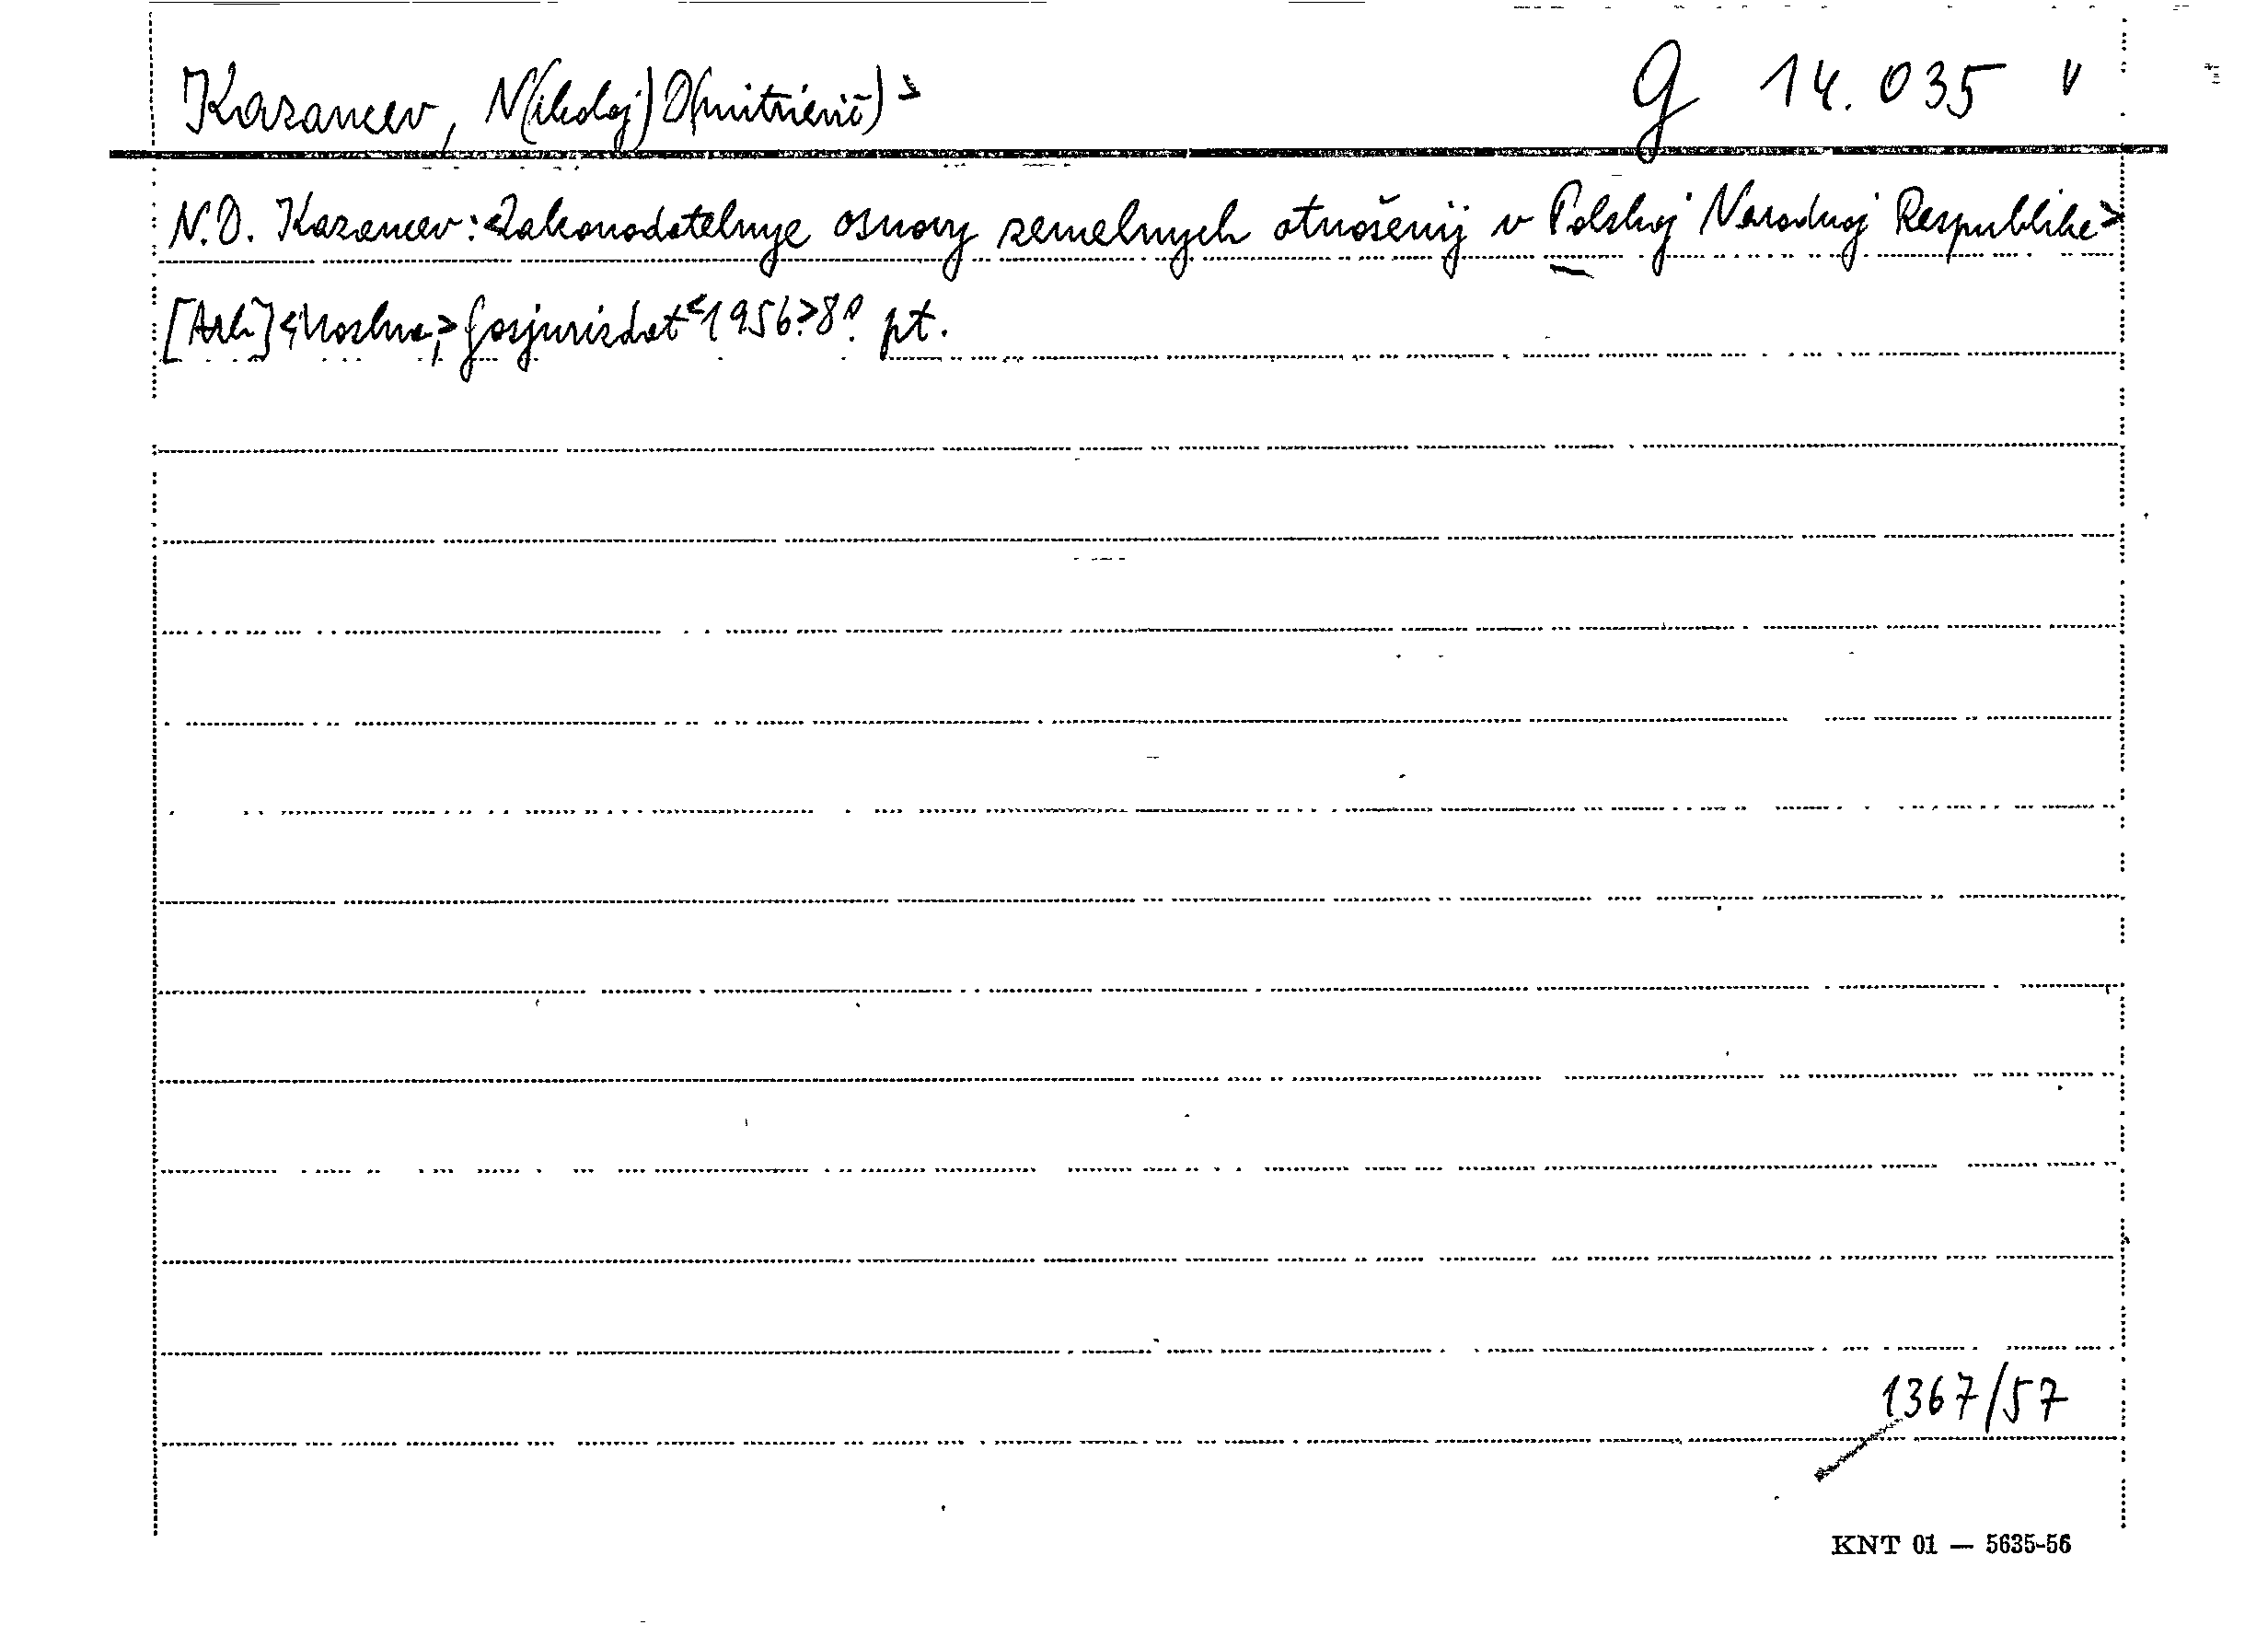 Kazancev, N(ikolaj) D(mitrievič)> G 14.035 v
N.D. Kazancev: <Zakonodatelnye osnovy zemelnych otnošenij v Polskoj Narodnoj Respublike>
<Moskva,> Gosjurizdat <1956.> 8° pt.
1367/57
KNT 01 — 5635-56